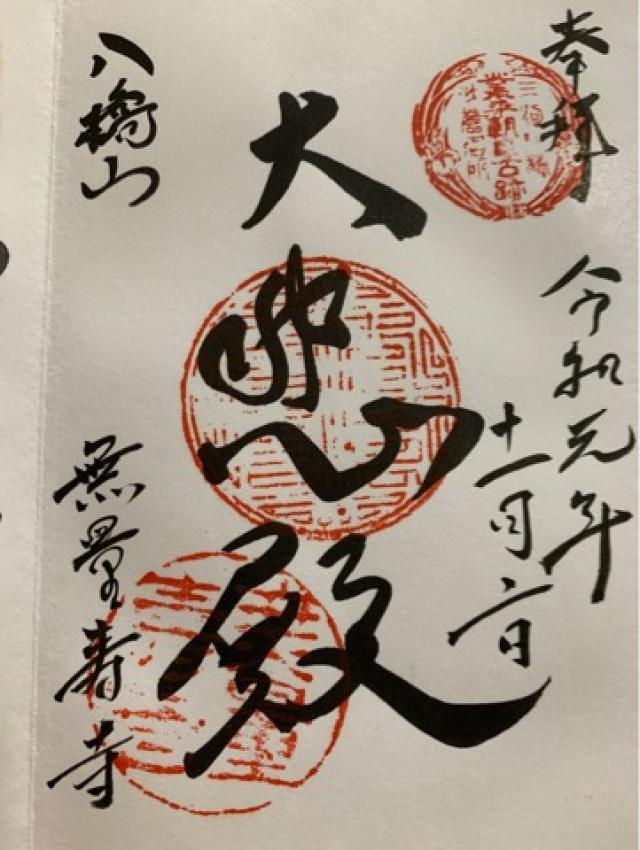 奉拝
三河八橋
業平朝臣古跡
令和元年
十一月二日
大悲殿
八橋山
無量寿寺